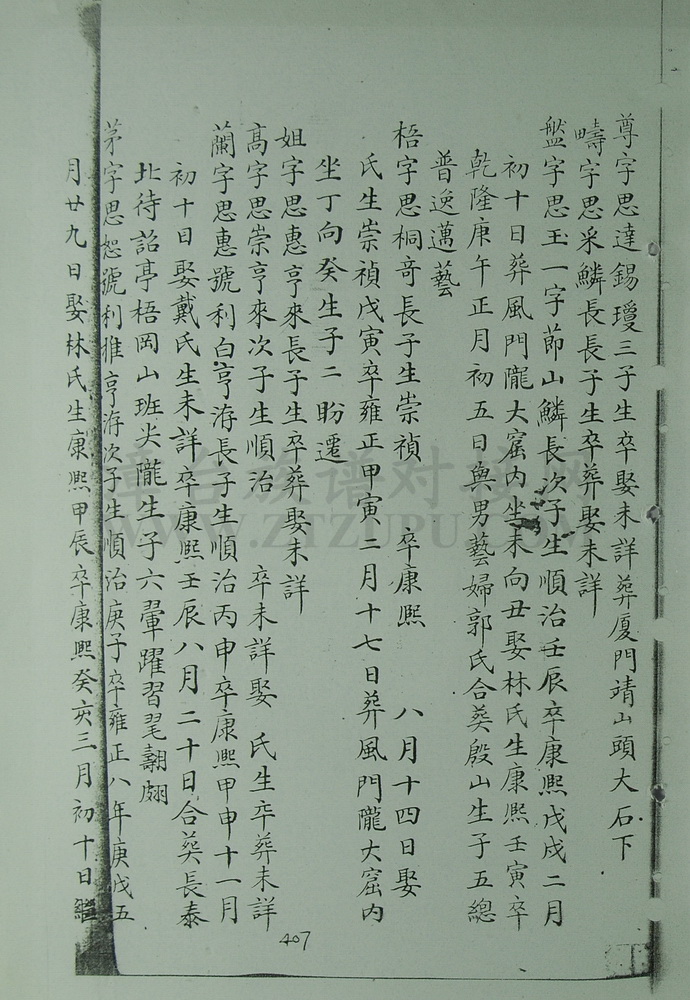 尊字思達錫瓊三子生卒娶未詳葬厦門靖山頭大石下
疇字思采鱗長長子生卒葬娶未詳
盤字思玉一字節山鱗長次子生順治壬辰卒康熙戊戌二月
初十日葬風門隴大窟内坐未向丑娶林氏生康熙壬寅卒
乾隆庚午正月初五日與男藝婦郭氏合葬殷山生子五總
普逸邁藝
梧字思桐奇長子生崇禎 卒康熙 八月十四日娶
氏生崇禎戊寅卒雍正甲寅二月十七日葬風門隴大窟内
坐丁向癸生子二 盼遷
姐字思惠亨來長子生卒葬娶未詳
高字思崇亨來次子生順治 卒未詳娶 氏生卒葬未詳
蘭字思惠號利白亨洊長子生順治丙申卒康熙甲申十一月
初十日娶戴氏生未詳卒康熙壬辰八月二十日合葬長泰
北待詔亭梧岡山班尖隴生子六翬躍習毣翿翅
茅字思恕號利推亨洊次子生順治庚子卒雍正八年庚戌五
月廿九日娶林氏生康熙甲辰卒康熙癸亥三月初十日繼
407
漳台族谱对接网
WWW.ZTZUPU.COM